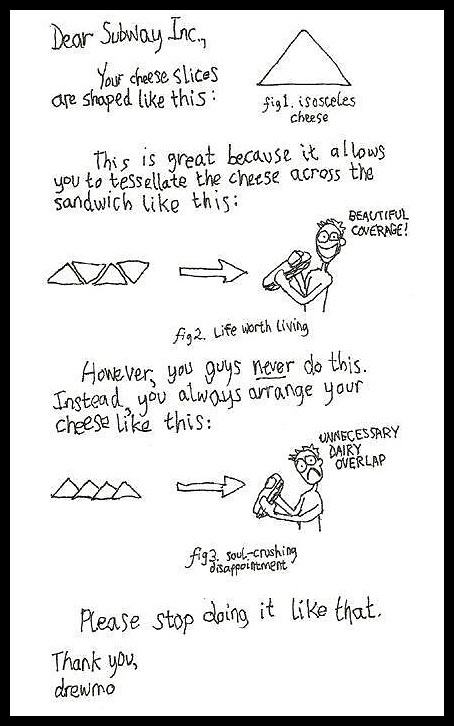 Dear Subway Inc.,
Your cheese slices
are shaped like this:
fig1. isosceles
cheese
This is great because it allows
you to tessellate the cheese across the
sandwich like this:
BEAUTIFUL
COVERAGE!
fig2. Life worth living
However, you guys never do this.
Instead, you always arrange your
cheese like this:
UNNECESSARY
DAIRY
OVERLAP
fig3. soul-crushing
disappointment
Please stop doing it like that.
Thank you,
drewmo